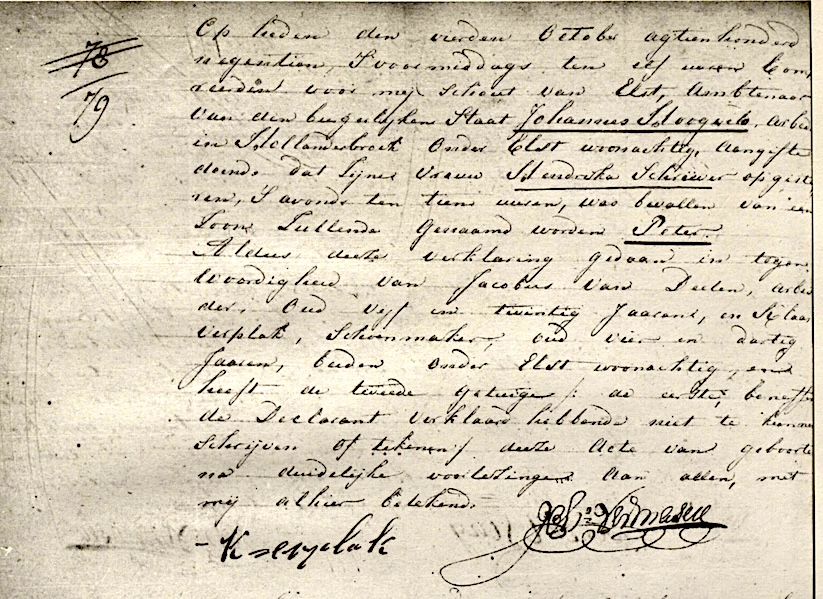 78
79
Op heden den vierden October agtienhonderd
negentien, S'voormiddags ten elf uuren Com
reerden voor mij Schout van Elst, Ambtenaar
van den burgelijken Staat Johannes Hoogveld, Arbei
in Hollanderbroek onder Elst woonachtig, aangifte
doende dat Zijne vrouw Hendrika Schriever op giste
ren, S'avonds ten tien uuren, was bevallen van een
Zoon Zullende Genaamd worden Peter.
Aldus deeze verklaring gedaan in tegen
woordigheid van Jacobus van Deelen, arbei
der, Oud vijf en twintig Jaaren, en Klaas
Verplak, Schoenmaker, oud vier en dartig
Jaaren, beiden onder Elst woonachtig, en
heeft de tweede getuige /: de eerste, beneffen
de Declarant verklaard hebbende niet te kunnen
Schrijven of tekenen / deeze Acte van geboorte
na duidelijke voorlezinge Aan allen, met
mij alhier Getekend.
K Verplak
Vermasen